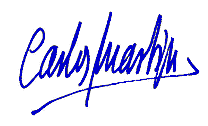 Carlos Martín